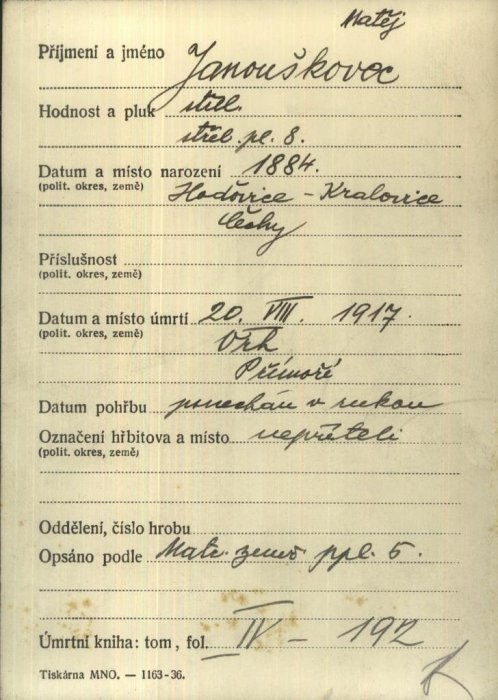 Matěj
Příjmení a jméno Janouškovec
Hodnost a pluk střl.
střeb. pl. 8.
Datum a místo narození 1884.
(polit. okres, země) Hodovice - Kralovice
Čechy
Příslušnost
(polit. okres, země)
Datum a místo úmrtí 20. VIII. 1917.
(polit. okres, země) Vrh
Přímoří
Datum pohřbu ponechán v rukou
Označení hřbitova a místo nepříteli
(polit. okres, země)
Oddělení, číslo hrobu
Opsáno podle Matr. zemř. ppl. 5.
Úmrtní kniha: tom, fol. IV - 192
Tiskárna MNO. — 1163-36.